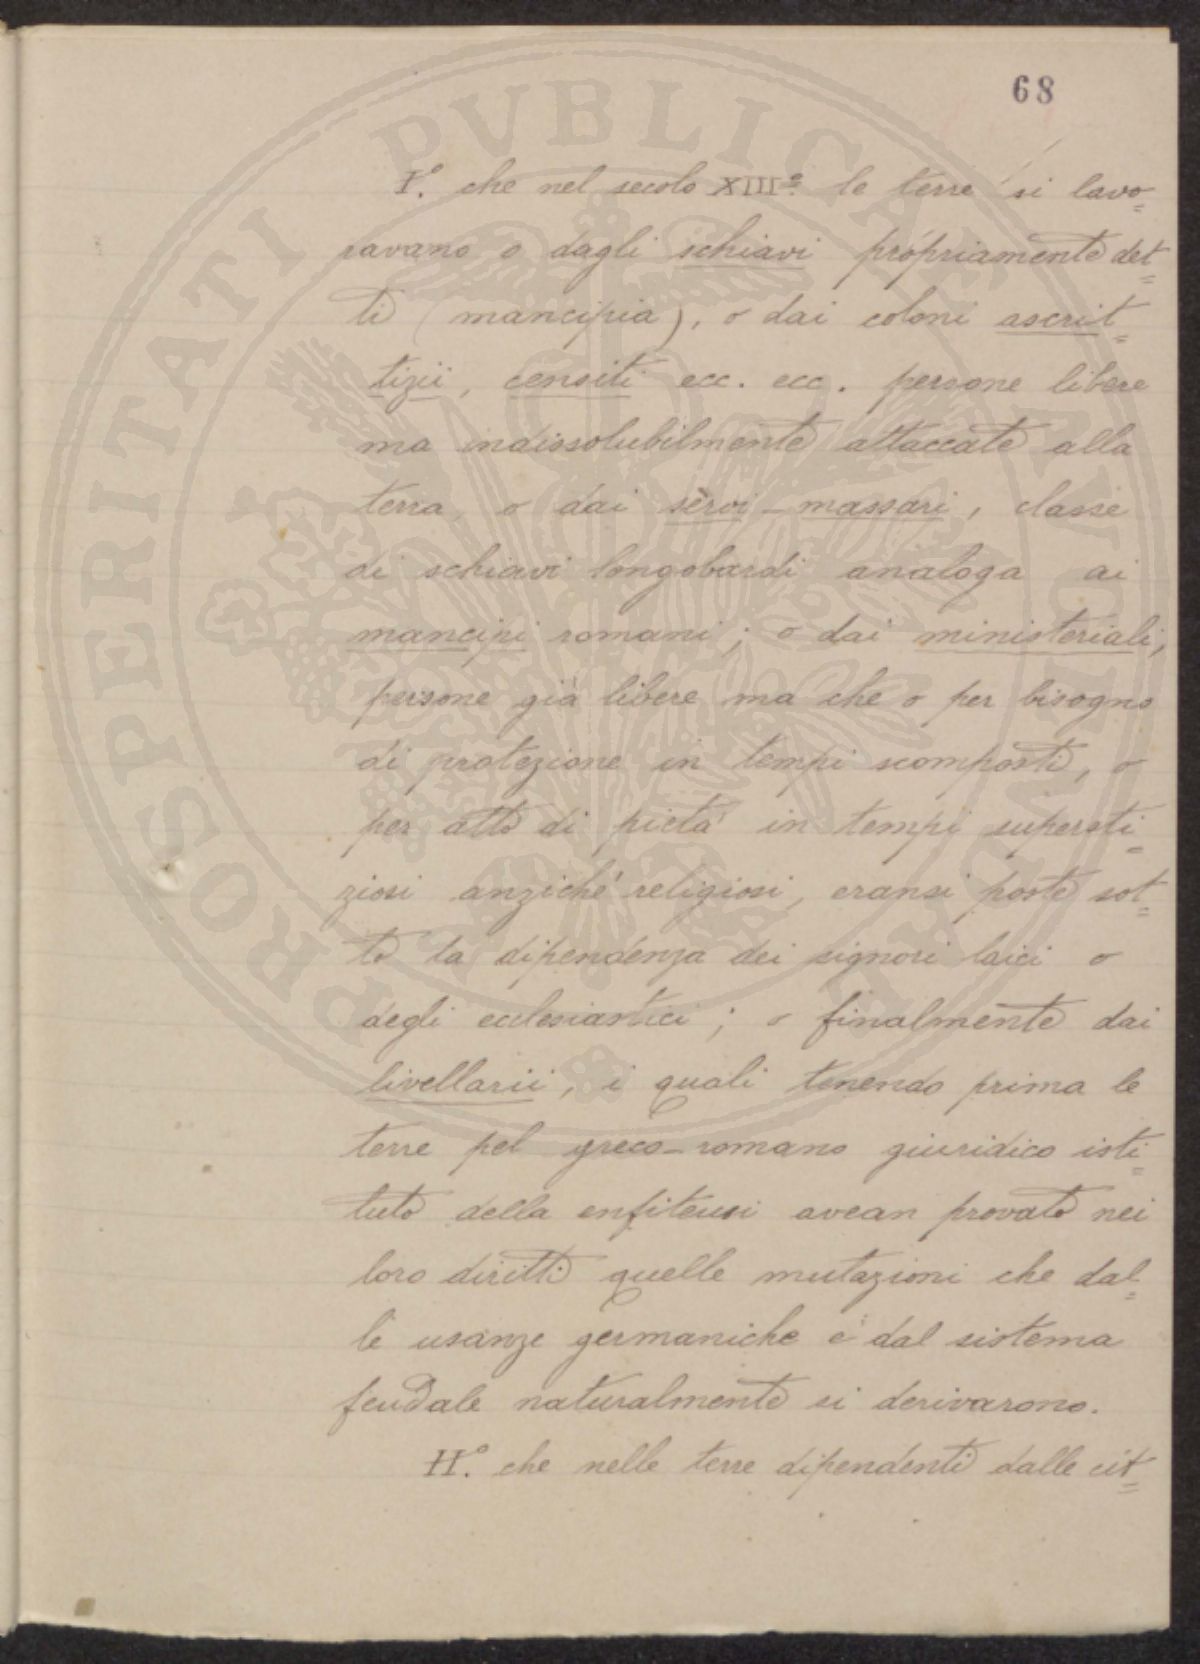 68
I.° che nel secolo XIII.° le terre si lavo=
ravano o dagli schiavi propriamente det=
ti (mancipia), o dai coloni ascrit=
tizii, censiti ecc. ecc. persone libere
ma indissolubilmente attaccate alla
terra, o dai servi-massari, classe
di schiavi longobardi analoga ai
mancipi romani; o dai ministeriali,
persone già libere ma che o per bisogno
di protezione in tempi scomposti, o
per atto di pietà in tempi supersti=
ziosi anziché religiosi, eransi poste sot=
to la dipendenza dei signori laici o
degli ecclesiastici; o finalmente dai
livellarii, i quali tenendo prima le
terre pel greco-romano giuridico isti=
tuto della enfiteusi avean provato nei
loro diritti quelle mutazioni che dal=
le usanze germaniche e dal sistema
feudale naturalmente si derivarono.
II.° che nelle terre dipendenti dalle cit=
PROSPERITATI PVBLICAE AVGENDAE